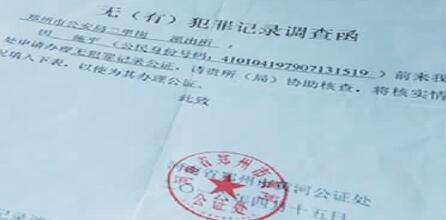 无（有）犯罪记录调查函
郑州市公安局二里岗 派出所，
因 施于 （公民身份号码：410104197907131519）前来我
处申请办理无犯罪记录公证，请贵所（局）协助核查，将核实情
填入下表，以便为其办理公证。
此致
省郑州市黄河公证处
年四月十五日
公证处